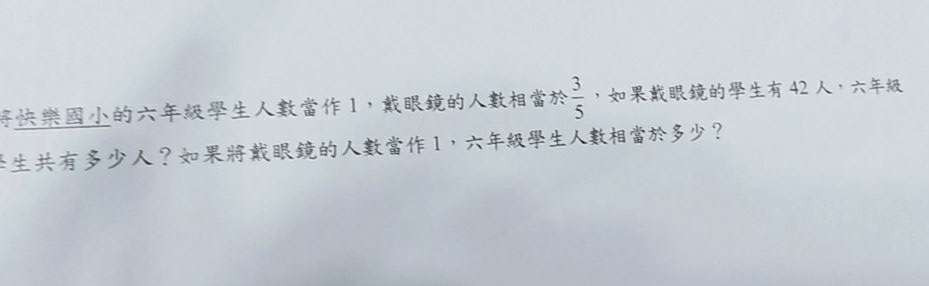 將快樂國小的六年級學生人數當作 1，戴眼鏡的人數相當於 3/5，如果戴眼鏡的學生有 42 人，六年級
學生共有多少人？如果將戴眼鏡的人數當作 1，六年級學生人數相當於多少？